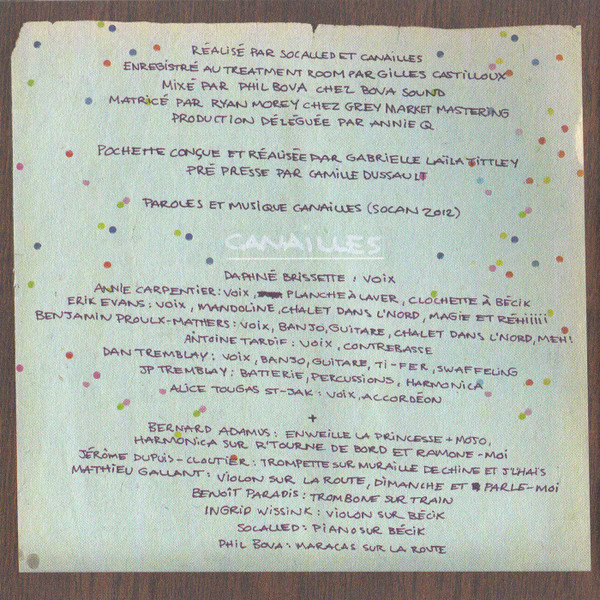 RÉALISÉ PAR SOCALLED ET CANAILLES
ENREGISTRÉ AU TREATMENT ROOM PAR GILLES CASTILLOUX
MIXÉ PAR PHIL BOVA CHEZ BOVA SOUND
MATRICÉ PAR RYAN MOREY CHEZ GREY MARKET MASTERING
PRODUCTION DÉLÉGUÉE PAR ANNIE Q
POCHETTE CONÇUE ET RÉALISÉE PAR GABRIELLE LAÏLA TITTLEY
PRÉ PRESSE PAR CAMILLE DUSSAULT
PAROLES ET MUSIQUE CANAILLES (SOCAN 2012)
CANAILLES
DAPHNÉ BRISSETTE : VOIX
ANNIE CARPENTIER : VOIX, PLANCHE À LAVER, CLOCHETTE À BÉCIK
ERIK EVANS : VOIX, MANDOLINE, CHALET DANS L'NORD, MAGIE ET RÉHIIIII
BENJAMIN PROULX-MATHERS : VOIX, BANJO, GUITARE, CHALET DANS L'NORD, MEH!
ANTOINE TARDIF : VOIX, CONTREBASSE
DAN TREMBLAY : VOIX, BANJO, GUITARE, TI-FER, SWAFFELING
JP TREMBLAY : BATTERIE, PERCUSSIONS, HARMONICA
ALICE TOUGAS ST-JAK : VOIX, ACCORDÉON
+
BERNARD ADAMUS : ENWEILLE LA PRINCESSE + MOJO,
HARMONICA SUR R'TOURNE DE BORD ET RAMONE-MOI
JÉRÔME DUPUIS-CLOUTIER : TROMPETTE SUR MURAILLE DE CHINE ET J'LHAÏS
MATHIEU GALLANT : VIOLON SUR LA ROUTE, DIMANCHE ET PARLE-MOI
BENOÎT PARADIS : TROMBONE SUR TRAIN
INGRID WISSINK : VIOLON SUR BÉCIK
SOCALLED : PIANO SUR BÉCIK
PHIL BOVA : MARACAS SUR LA ROUTE